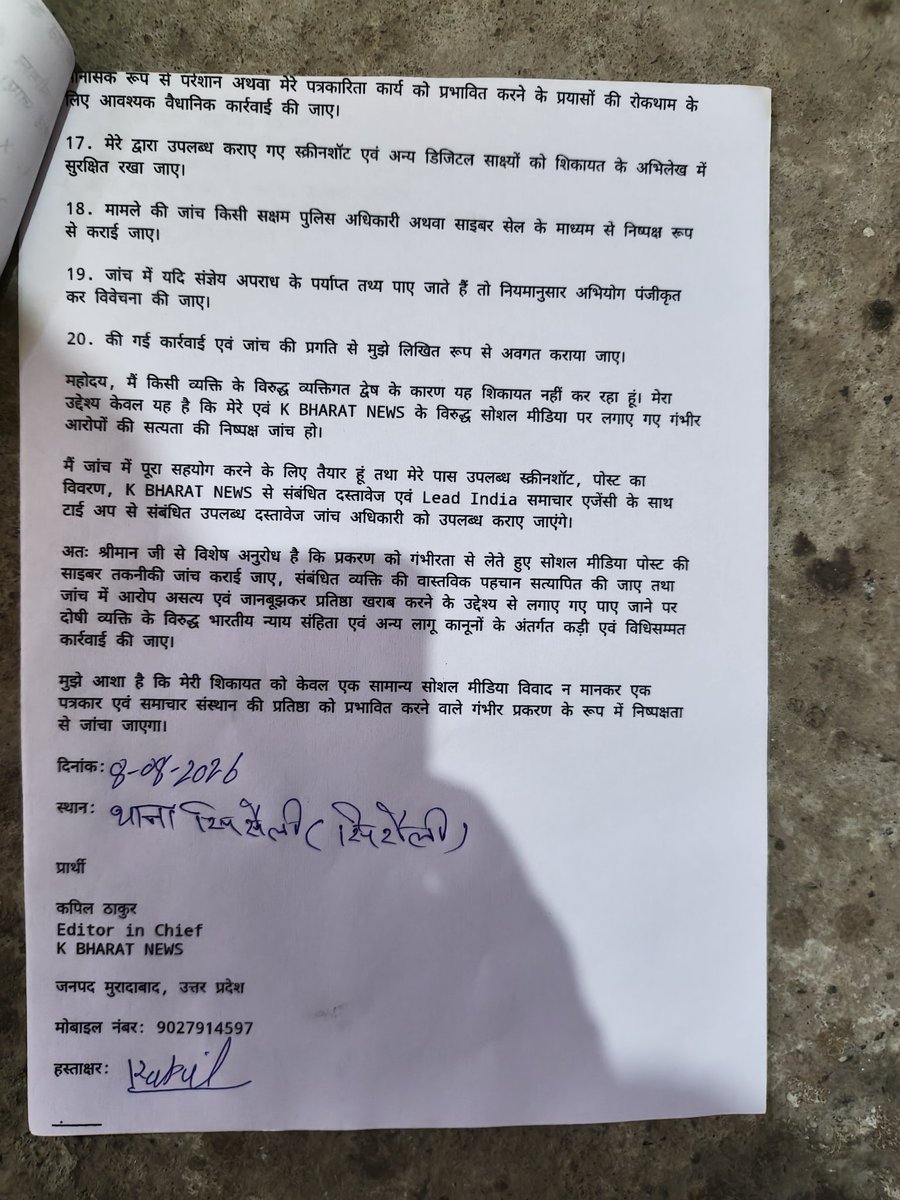 मानसिक रूप से परेशान अथवा मेरे पत्रकारिता कार्य को प्रभावित करने के प्रयासों की रोकथाम के
लिए आवश्यक वैधानिक कार्रवाई की जाए।
17. मेरे द्वारा उपलब्ध कराए गए स्क्रीनशॉट एवं अन्य डिजिटल साक्ष्यों को शिकायत के अभिलेख में
सुरक्षित रखा जाए।
18. मामले की जांच किसी सक्षम पुलिस अधिकारी अथवा साइबर सेल के माध्यम से निष्पक्ष रूप
से कराई जाए।
19. जांच में यदि संज्ञेय अपराध के पर्याप्त तथ्य पाए जाते हैं तो नियमानुसार अभियोग पंजीकृत
कर विवेचना की जाए।
20. की गई कार्रवाई एवं जांच की प्रगति से मुझे लिखित रूप से अवगत कराया जाए।
महोदय, मैं किसी व्यक्ति के विरुद्ध व्यक्तिगत द्वेष के कारण यह शिकायत नहीं कर रहा हूं। मेरा
उद्देश्य केवल यह है कि मेरे एवं K BHARAT NEWS के विरुद्ध सोशल मीडिया पर लगाए गए गंभीर
आरोपों की सत्यता की निष्पक्ष जांच हो।
मैं जांच में पूरा सहयोग करने के लिए तैयार हूं तथा मेरे पास उपलब्ध स्क्रीनशॉट, पोस्ट का
विवरण, K BHARAT NEWS से संबंधित दस्तावेज एवं Lead India समाचार एजेंसी के साथ
टाई अप से संबंधित उपलब्ध दस्तावेज जांच अधिकारी को उपलब्ध कराए जाएंगे।
अतः श्रीमान जी से विशेष अनुरोध है कि प्रकरण को गंभीरता से लेते हुए सोशल मीडिया पोस्ट की
साइबर तकनीकी जांच कराई जाए, संबंधित व्यक्ति की वास्तविक पहचान सत्यापित की जाए तथा
जांच में आरोप असत्य एवं जानबूझकर प्रतिष्ठा खराब करने के उद्देश्य से लगाए गए पाए जाने पर
दोषी व्यक्ति के विरुद्ध भारतीय न्याय संहिता एवं अन्य लागू कानूनों के अंतर्गत कड़ी एवं विधिसम्मत
कार्रवाई की जाए।
मुझे आशा है कि मेरी शिकायत को केवल एक सामान्य सोशल मीडिया विवाद न मानकर एक
पत्रकार एवं समाचार संस्थान की प्रतिष्ठा को प्रभावित करने वाले गंभीर प्रकरण के रूप में निष्पक्षता
से जांचा जाएगा।
दिनांक: 8-08-2026
स्थान: थाना
प्रार्थी
कपिल ठाकुर
Editor in Chief
K BHARAT NEWS
जनपद मुरादाबाद, उत्तर प्रदेश
मोबाइल नंबर: 9027914597
हस्ताक्षर: Kapil